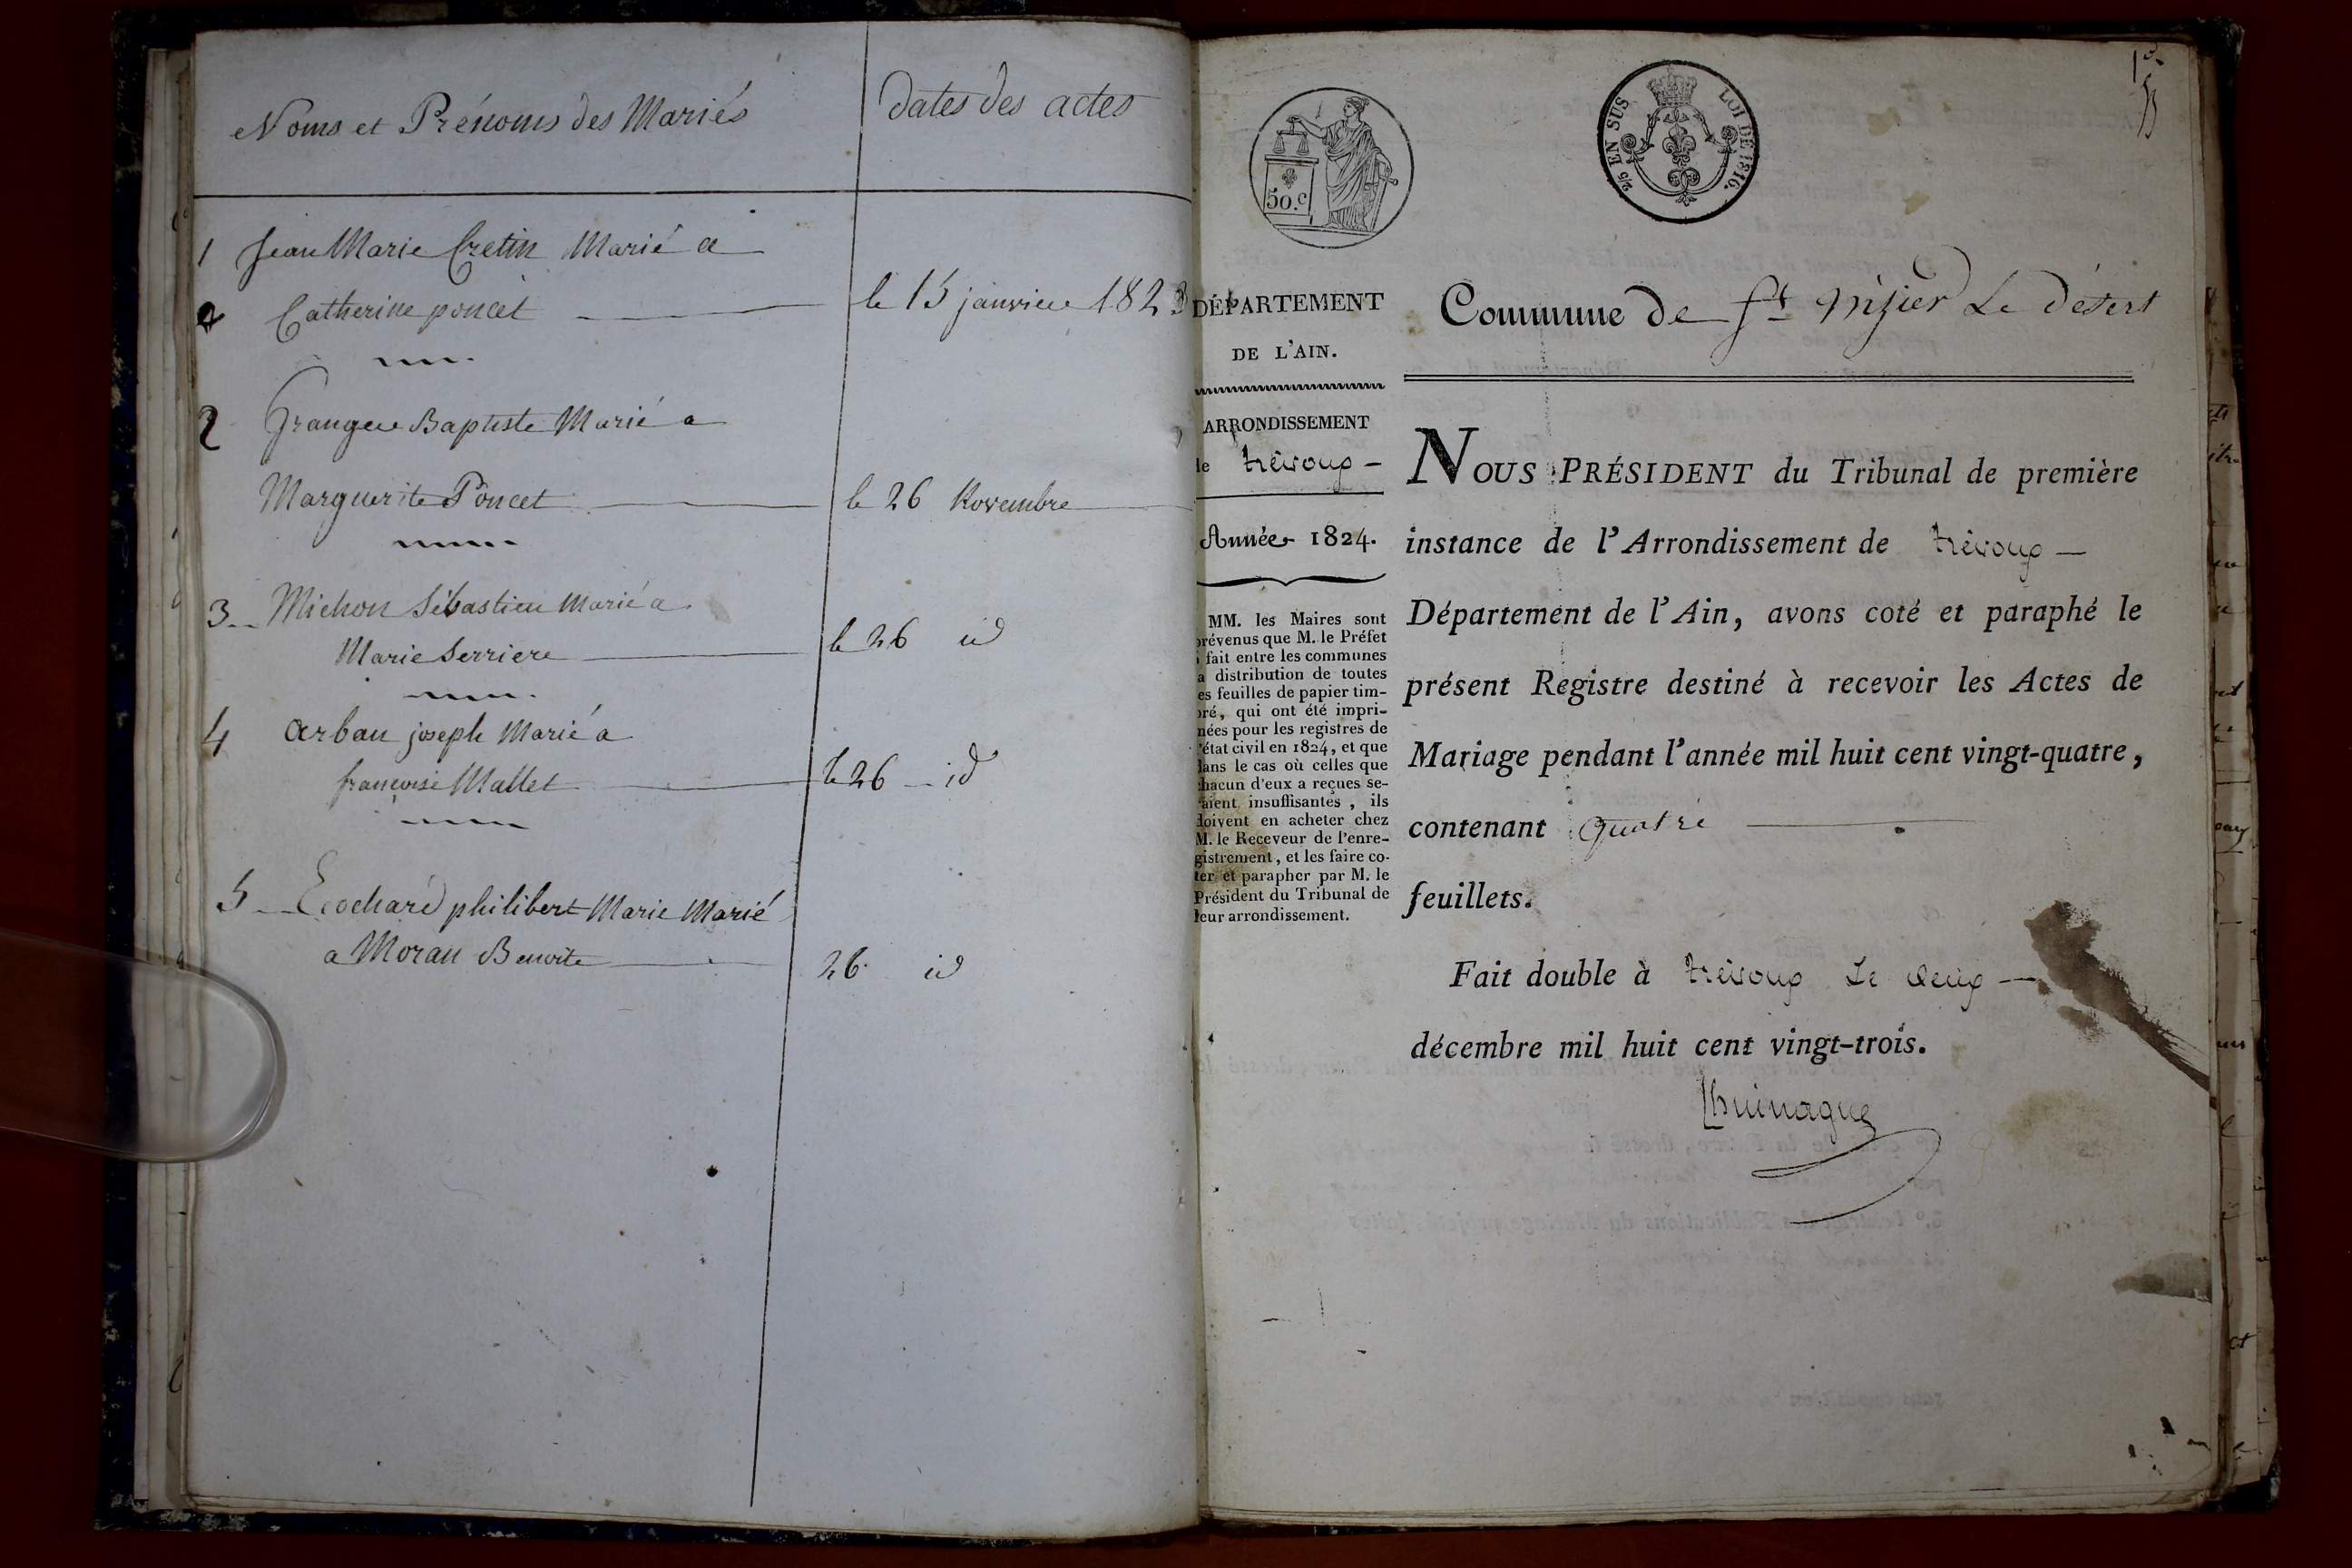 Noms et Prénoms des Mariés
dates des actes
1 Jean Marie Cretin Marié a
Catherine poncet
le 15 janvier 1823
2 Granger Baptiste Marié a
Marguerite Poncet
le 26 Novembre
3 Michon Sébastien marié a
Marie Serriere
le 26 id
4 arban joseph Marié a
francoise Mallet
le 26 id
5 philibert Marie Marié
a Moran Benoite
26 id
50.c
2/5 EN SUS
LOI DE 1816.
1er
DÉPARTEMENT
DE L'AIN.
ARRONDISSEMENT
de trévoux
Année 1824.
MM. les Maires sont
prévenus que M. le Préfet
a fait entre les communes
la distribution de toutes
les feuilles de papier tim-
bré, qui ont été impri-
mées pour les registres de
l'état civil en 1824, et que
dans le cas où celles que
chacun d'eux a reçues se-
raient insuffisantes, ils
doivent en acheter chez
M. le Receveur de l'enre-
gistrement, et les faire co-
ter et parapher par M. le
Président du Tribunal de
leur arrondissement.
Commune de St Nizier Le désert
NOUS PRÉSIDENT du Tribunal de première
instance de l'Arrondissement de trévoux
Département de l'Ain, avons coté et paraphé le
présent Registre destiné à recevoir les Actes de
Mariage pendant l'année mil huit cent vingt-quatre,
contenant quatre
feuillets.
Fait double à trévoux Le deux
décembre mil huit cent vingt-trois.